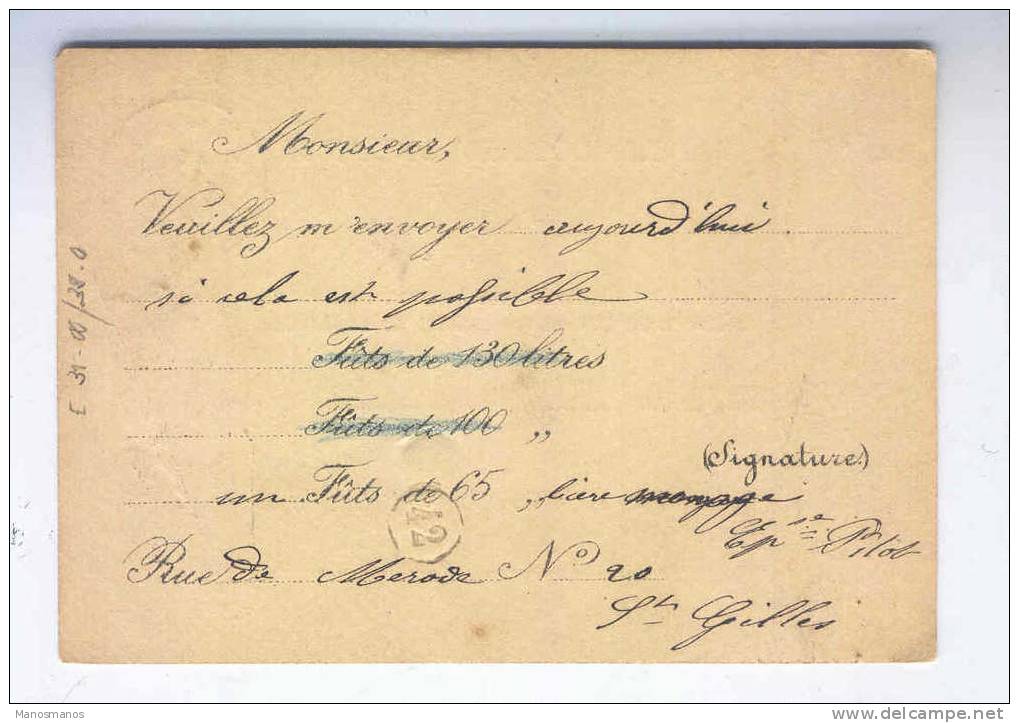 Monsieur,
Veuillez m'envoyer aujourd'hui.
si cela est possible
Fûts de 130 litres
Fûts de 100 „
(Signature)
un Fûts de 65 „ bière
Rue de Merode No 20
St Gilles
E 31-00/38.0
42
Manosmanos
www.delcampe.net